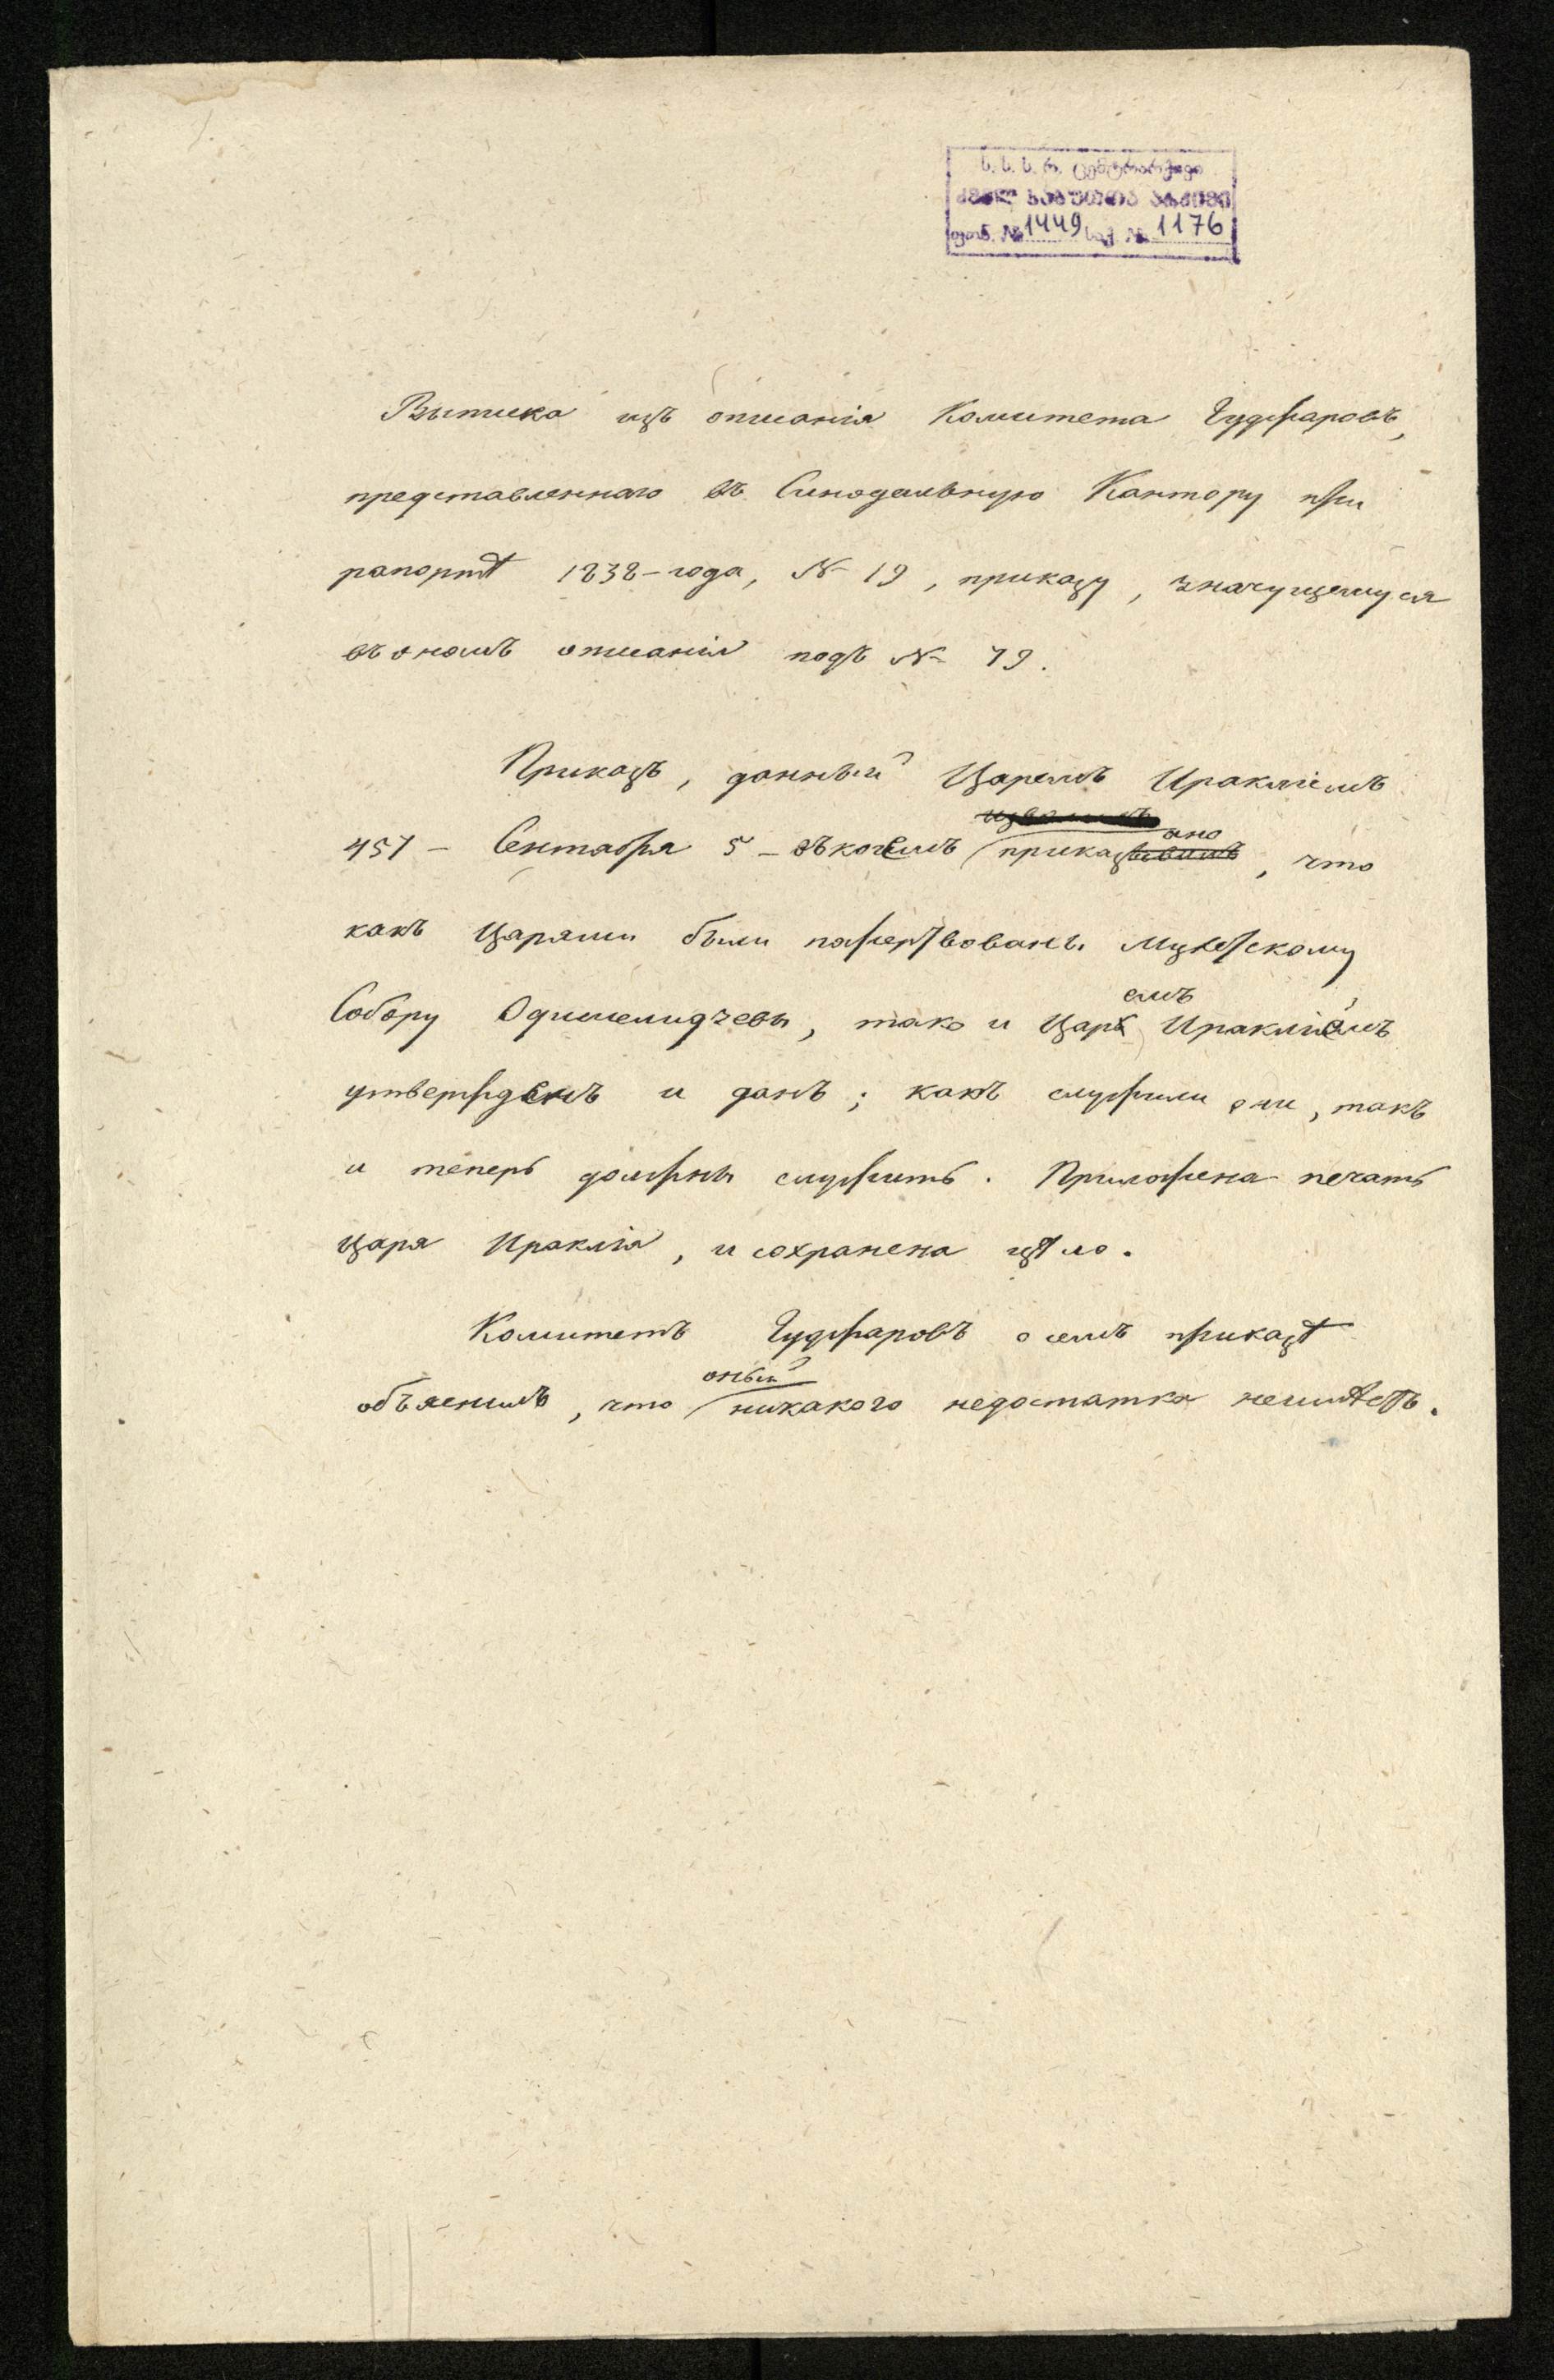 ს. ს. ს. რ. ცენტრარქივი
ძველ საბუთთა არქივი
ფონ. № 1449 საქ. № 1176
Выписка изъ описанія Комитета Гуджаровъ,
представленнаго въ Синодальную Кантору при
рапортѣ 1838-года, № 19, приказу, значущемуся
въ ономъ описаніи подъ № 79.
Приказъ, данный Царемъ Иракліемъ
457 – Сентября 5 – въкоемъ приказано, что
какъ Царями были пожертвованы Мцхетскому
Собору Одишелидчевы, тако и Царемъ Иракліемъ
утвержденъ и данъ; какъ служили они, такъ
и теперь должны служить. Приложена печать
Царя Ираклія, и сохранена цѣло.
Комитетъ Гуджаровъ о семъ приказѣ
объяснилъ, что оный никакого недостатка неимѣетъ.